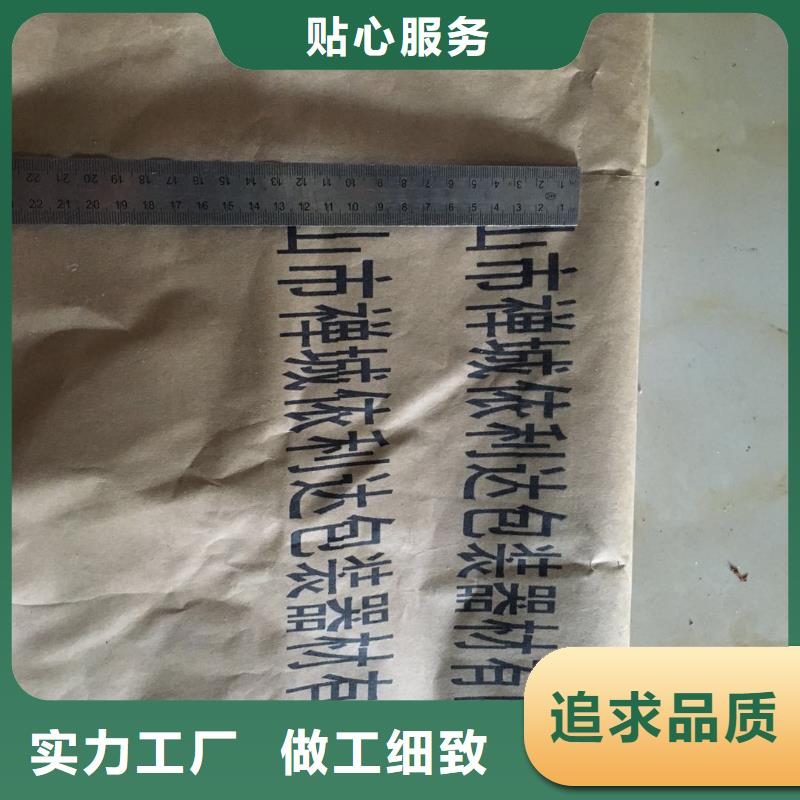 贴心服务
22 21 20 19 18 17 16 15 14 13 12 11 10 9 8 7 6 5 4 3 2 1
22 21 20 19 18 17 16 15 14 13 12 11 10 9 8 7 6 5 4 3 2 1
山市禅城依利达包装器材有
山市禅城依利达包装器材有
追求品质
实力工厂 做工细致